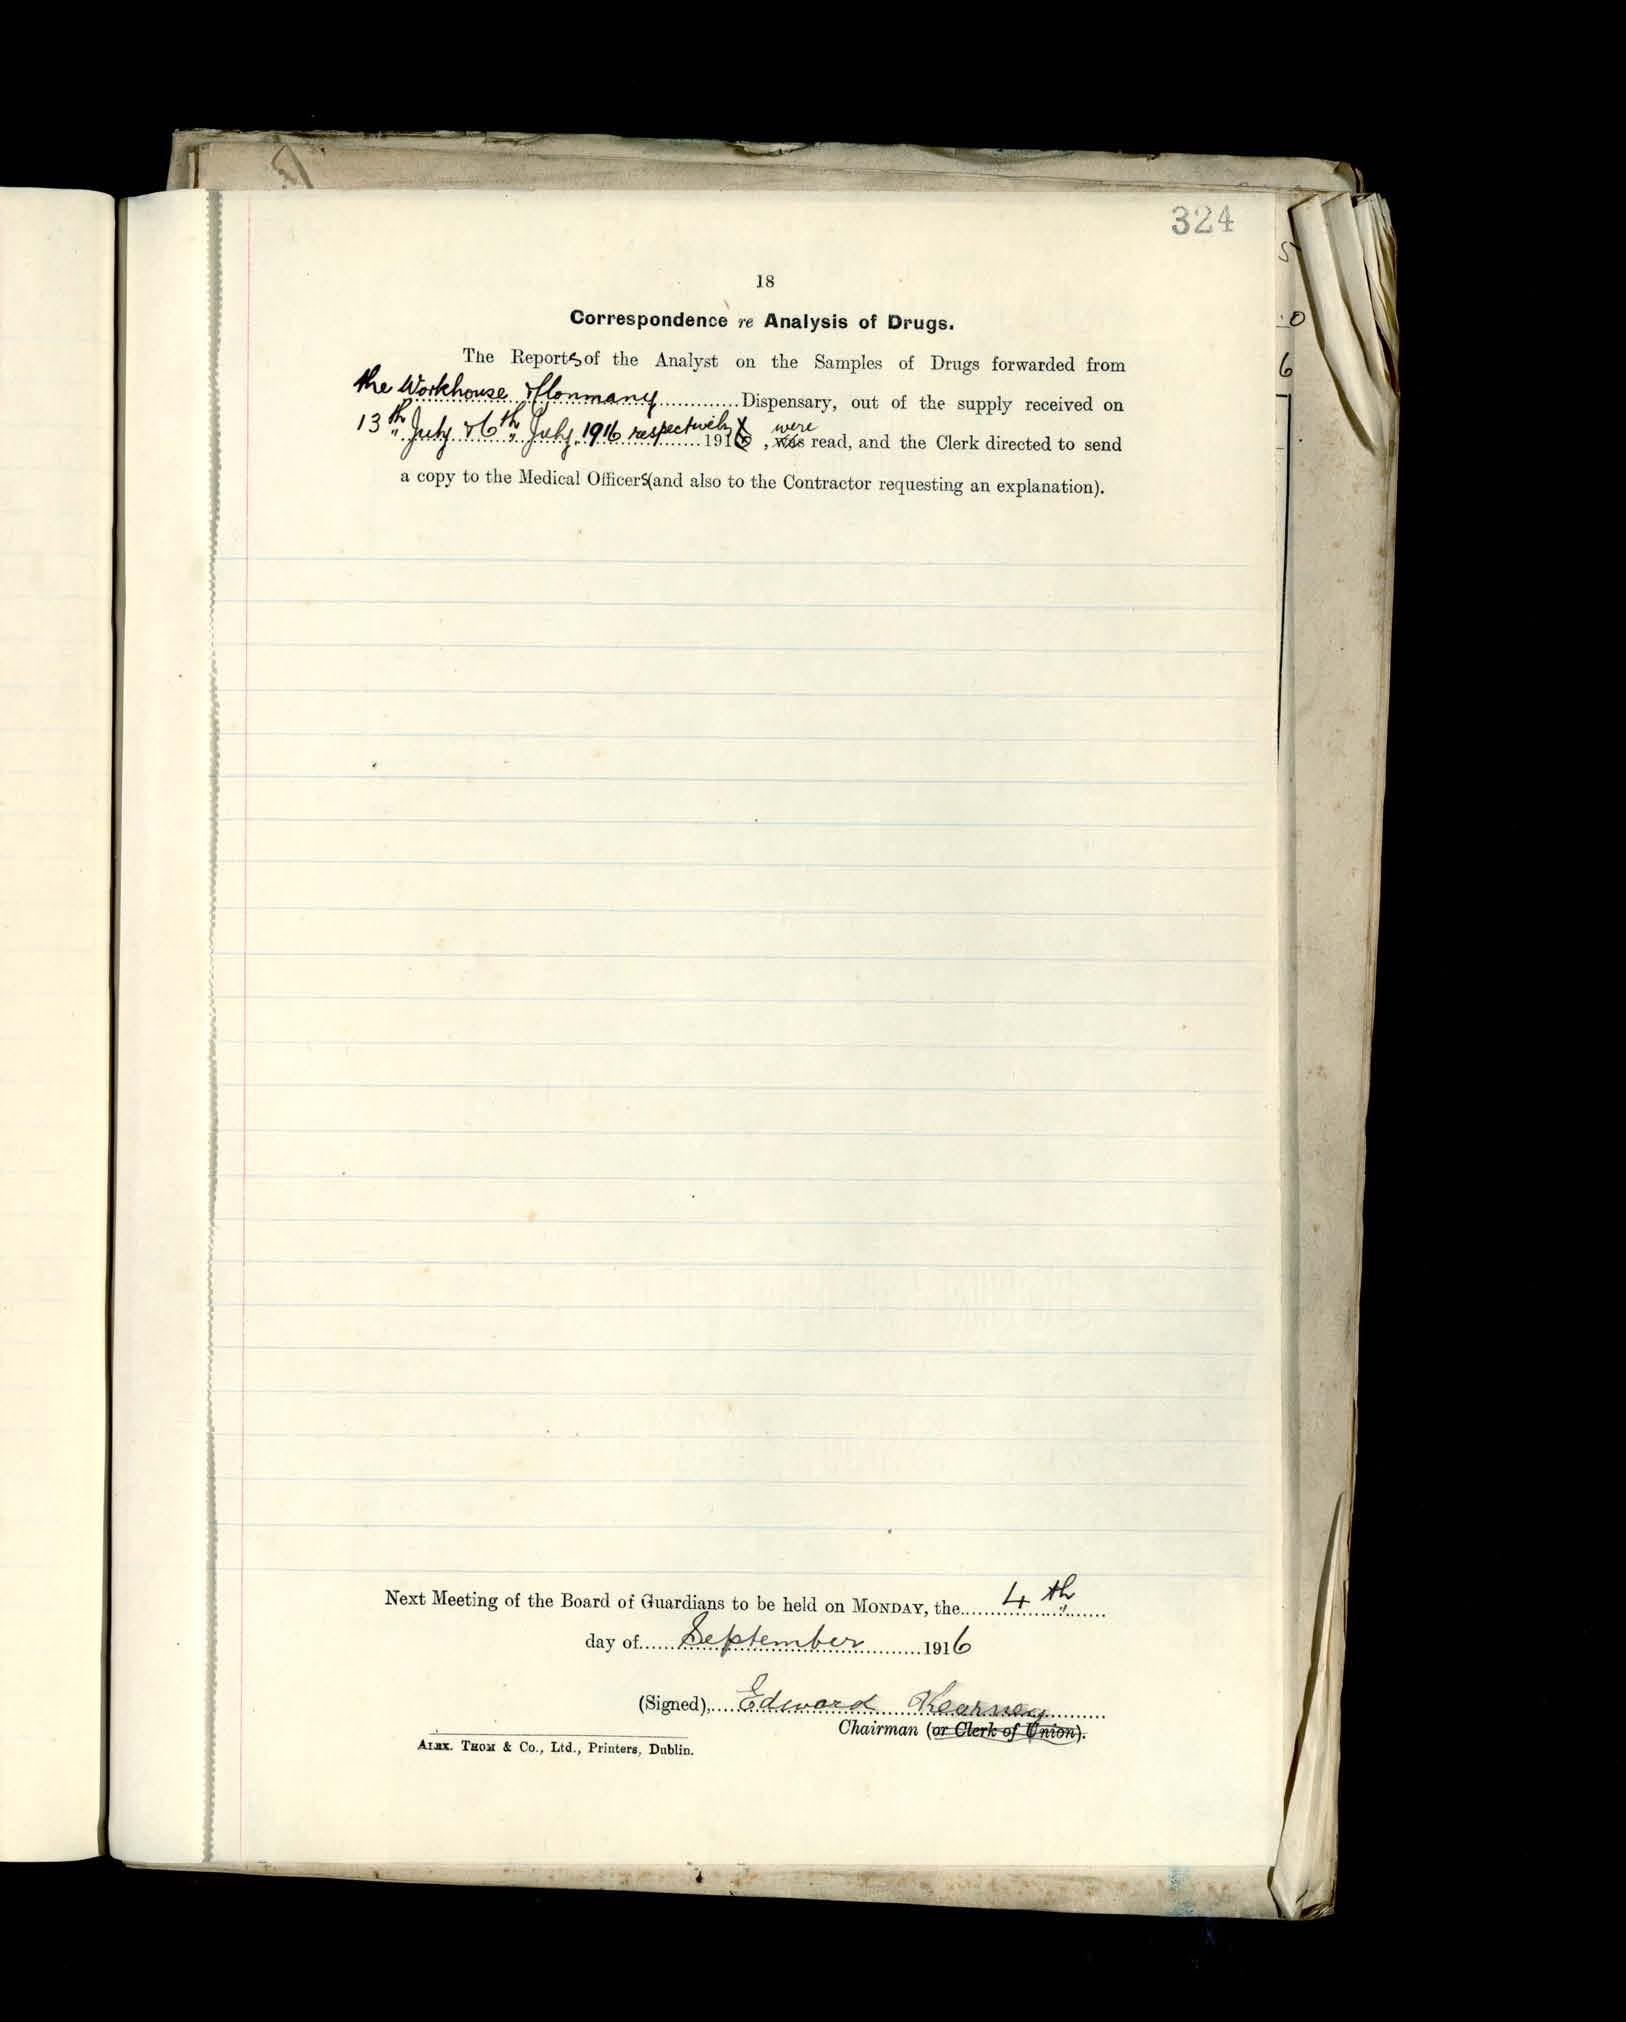 324
18
Correspondence re Analysis of Drugs.
The Reports of the Analyst on the Samples of Drugs forwarded from
the Workhouse & Clonmany Dispensary, out of the supply received on
13th July & 6th July, 1916 respectively 191 , were was read, and the Clerk directed to send
a copy to the Medical Officers (and also to the Contractor requesting an explanation).
Next Meeting of the Board of Guardians to be held on MONDAY, the 4th
day of September 1916
(Signed), Edward Kearney
Chairman (or Clerk of Union).
ALEX. THOM & Co., Ltd., Printers, Dublin.
5
0
6